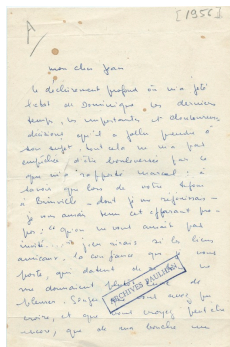 [1956]
A/
mon cher Jean
le déchirement profond où m'a jeté
l'état de Dominique ces derniers
temps, les importantes et douloureuses
décisions qu'il a fallu prendre à
son sujet, tout cela ne m'a pas
empêchée d'être bouleversée par ce
que m'a rapporté Marcel : à
savoir que lors de votre séjour
à Brinville - dont je me réjouissais -
je vous aurais tenu cet effarant pro-
pos : "qu'on ne vous avait pas
invité." J'en rirais si les liens
amicaux, la confiance que je vous
porte, qui datent de
me donnaient plutôt envie de
pleurer. Songer que vous avez pu
croire, et que vous croyez peut-être
encore, que de ma bouche une
ARCHIVES PAULHAN